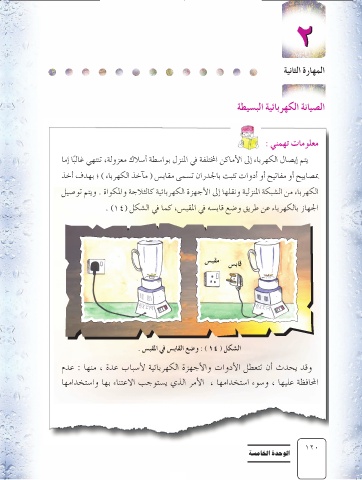 ٢
المهارة الثانية
الصيانة الكهربائية البسيطة
معلومات تهمني :
يتم إيصال الكهرباء إلى الأماكن المختلفة في المنزل بواسطة أسلاك معزولة، تنتهي غالبًا إما
بمصابيح أو مفاتيح أو أدوات تثبت بالجدران تسمى مقابس ( مآخذ الكهرباء ) ؛ بهدف أخذ
الكهرباء من الشبكة المنزلية ونقلها إلى الأجهزة الكهربائية كالثلاجة والمكواة . ويتم توصيل
الجهاز بالكهرباء عن طريق وضع قابسه في المقبس، كما في الشكل ( ١٤ ) .
مقبس
قابس
الشكل ( ١٤ ) : وضع القابس في المقبس .
وقد يحدث أن تتعطل الأدوات والأجهزة الكهربائية لأسباب عدة ، منها : عدم
المحافظة عليها ، وسوء استخدامها ، الأمر الذي يستوجب الاعتناء بها واستخدامها
١٢٠
الوحدة الخامسة